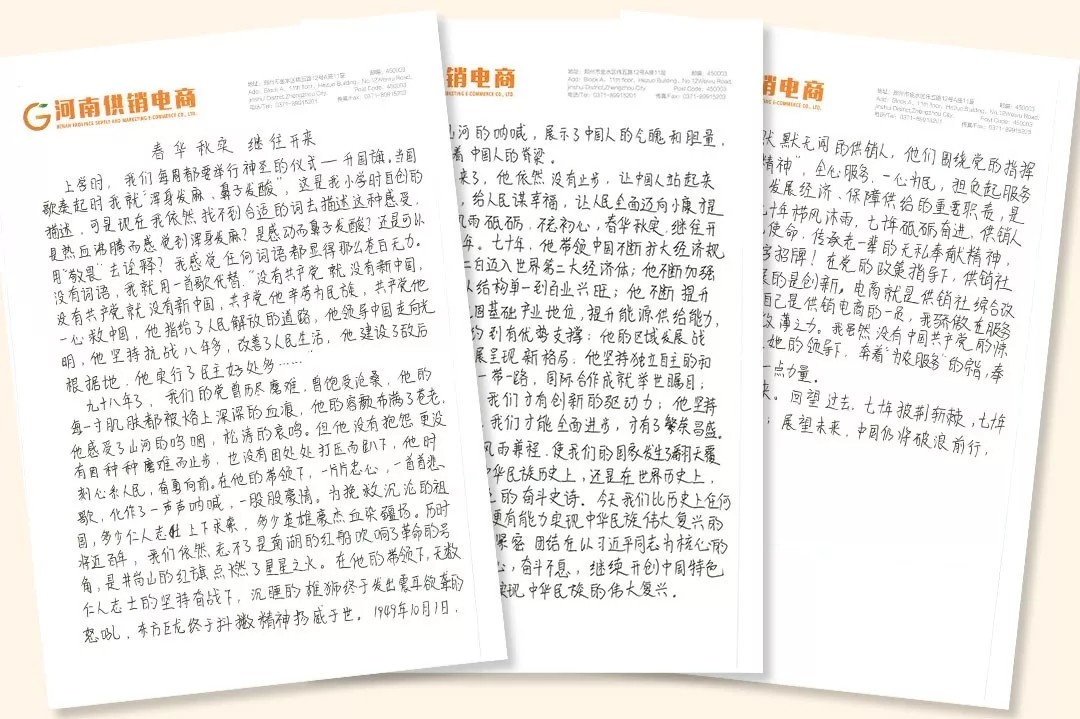 河南供销电商
HENAN PROVINCE SUPPLY AND MARKETING E-COMMERCE CO., LTD.
地址：郑州市金水区纬五路12号A座11层 邮编：450003
Add：Block A, 11th floor, Hezuo Building, No.12Weiwu Road,
Jinshui District,Zhengzhou City Post Code. 450003
电话/Tel：0371-89915201 传真/Fax：0371-89915203
春华秋实 继往开来
上学时，我们每周都要举行神圣的仪式—升国旗。当国
歌奏起时我就"浑身发麻，鼻子发酸"，这是我小学时自创的
描述，可是现在我依然找不到合适的词去描述这种感受，
是热血沸腾而感觉到浑身发麻？是感动而鼻子发酸？还是可以
用"敬畏"去诠释？我感觉任何词语都显得那么苍白无力。
没有词语，我就用一首歌代替，"没有共产党就没有新中国，
没有共产党就没有新中国，共产党他辛劳为民族，共产党他
一心救中国，他指给了人民解放的道路，他领导中国走向光
明，他坚持抗战八年多，改善了人民生活，他建设了敌后
根据地，他实行了民主好处多……"
九十八年了，我们的党曾历尽磨难，曾饱受沧桑，他的
每一寸肌肤都被烙上深深的血浪，他的容颜布满了苍老，
他感受了山河的呜咽，松涛的哀鸣。但他没有抱怨更没
有因种种磨难而止步，也没有因处处打压而卧下，他时
刻心系人民，奋勇向前。在他的带领下，一片片忠心，一首首悲
歌，化作了一声声呐喊，一股股豪情。为挽救沉沦的祖
国，多少仁人志士上下求索，多少英雄豪杰血染疆场。历时
将近百年，我们依然忘不了是南湖的红船吹响了革命的号
角，是井岗山的红旗点燃了星星之火。在他的带领下，无数
仁人志士的坚持奋战下，沉睡的雄狮终于发出震耳欲聋的
怒吼，东方巨龙终于抖擞精神扬威于世。1949年10月1日，
销电商
MARKETING E-COMMERCE CO., LTD.
地址：郑州市金水区纬五路12号A座11层 邮编：450003
Add：Block A, 11th floor, Hezuo Building, No.12Weiwu Road,
Jinshui District,Zhengzhou City Post Code. 450003
电话/Tel：0371-89915201 传真/Fax：0371-89915203
河的呐喊，展示了中国人的气魄和胆量，
着中国人的脊梁。
来了，他依然没有止步，让中国人站起来
，给人民谋幸福，让人民全面迈向小康才是
风雨砥砺，不忘初心，春华秋实，继往开
年。七十年，他带领中国不断扩大经济规
白迈入世界第二大经济体；他不断加强
从结构单一到百业兴旺；他不断提升
固基础产业地位，提升能源供给能力，
约到有优势支撑；他的区域发展战
展呈现新格局，他坚持独立自主的和
一带一路，国际合作成就举世瞩目；
我们才有创新的驱动力；他坚持
，我们才能全面进步，才有了繁荣昌盛。
风雨兼程，使我们的国家发生了翻天覆
华民族历史上，还是在世界历史上，
的奋斗史诗。今天我们比历史上任何
更有能力实现中华民族伟大复兴的
紧密团结在以习近平同志为核心的
心，奋斗不息，继续开创中国特色
实现中华民族的伟大复兴。
地址：郑州市金水区纬五路12号A座11层 邮编：450003
Add：Block A, 11th floor, Hezuo Building, No.12Weiwu Road,
Jinshui District,Zhengzhou City Post Code. 450003
电话/Tel：0371-89915201 传真/Fax：0371-89915203
默默无闻的供销人，他们围绕党的指挥
精神"，全心服务，一心为民，担负起服务
发展经济、保障供给的重要职责，是
七十年栉风沐雨，七十年砥砺奋进，供销人
使命，传承老一辈的无私奉献精神，
字招牌！在党的政策指导下，供销社
来的是创新。电商就是供销社综合改
自己是供销电商的一员，我骄傲在服务
微薄之力。我虽然没有中国共产党的惊
她的领导下，奔着"为农服务"的宗旨，奉
一点力量。
来。回望过去，七十年披荆斩棘，七十年
；展望未来，中国仍将破浪前行，